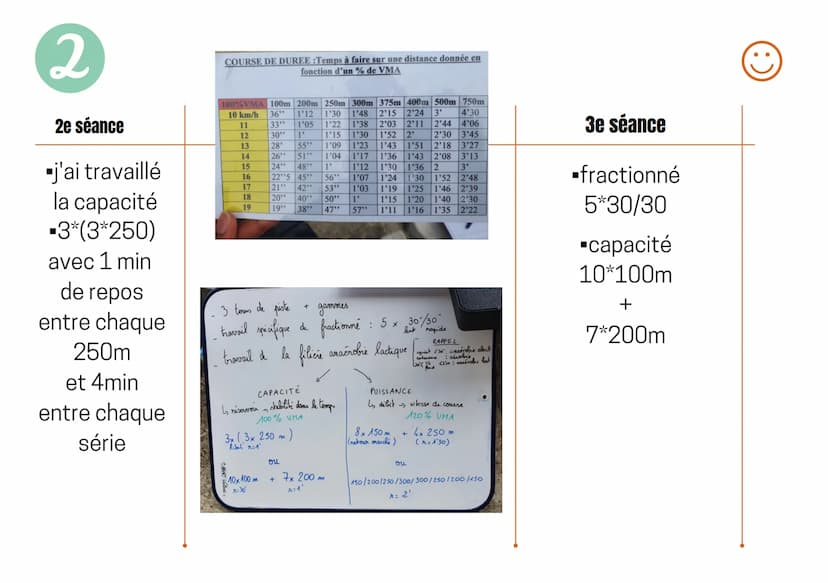 2
2e séance
▪j'ai travaillé
la capacité
▪3*(3*250)
avec 1 min
de repos
entre chaque
250m
et 4min
entre chaque
série
COURSE DE DUREE :Temps à faire sur une distance donnée en
fonction d'un % de VMA
100%VMA 100m 200m 250m 300m 375m 400m 500m 750m
10 km/h 36'' 1'12 1'30 1'48 2'15 2'24 3' 4'30
11 33'' 1'05 1'22 1'38 2'03 2'11 2'44 4'06
12 30'' 1' 1'15 1'30 1'52 2' 2'30 3'45
13 28'' 55'' 1'09 1'23 1'43 1'51 2'18 3'27
14 26'' 51'' 1'04 1'17 1'36 1'43 2'08 3'13
15 24'' 48'' 1' 1'12 1'30 1'36 2 3'
16 22''5 45'' 56'' 1'07 1'24 1'30 1'52 2'48
17 21'' 42'' 53'' 1'03 1'19 1'25 1'46 2'39
18 20'' 40'' 50'' 1' 1'15 1'20 1'40 2'30
19 19'' 38'' 47'' 57'' 1'11 1'16 1'35 2'22
- 3 tours de piste + gammes
- travail spécifique de fractionné : 5 x 30''/30''
lent rapide
- travail de la filière anaérobie lactique
RAPPEL
CAPACITÉ
↳ réservoir → stabilité dans le temps
100% VMA
3x (3x 250 m)
r=1'
ou
10x100m + 7x 200 m
r=30'' r=1'
PUISSANCE
↳ débit → vitesse de course
120% VMA
8x150m + 4x 250m
(retour marché) (r=1'30)
ou
150/200/250/300/300/250/200/150
r = 2'
3e séance
▪fractionné
5*30/30
▪capacité
10*100m
+
7*200m